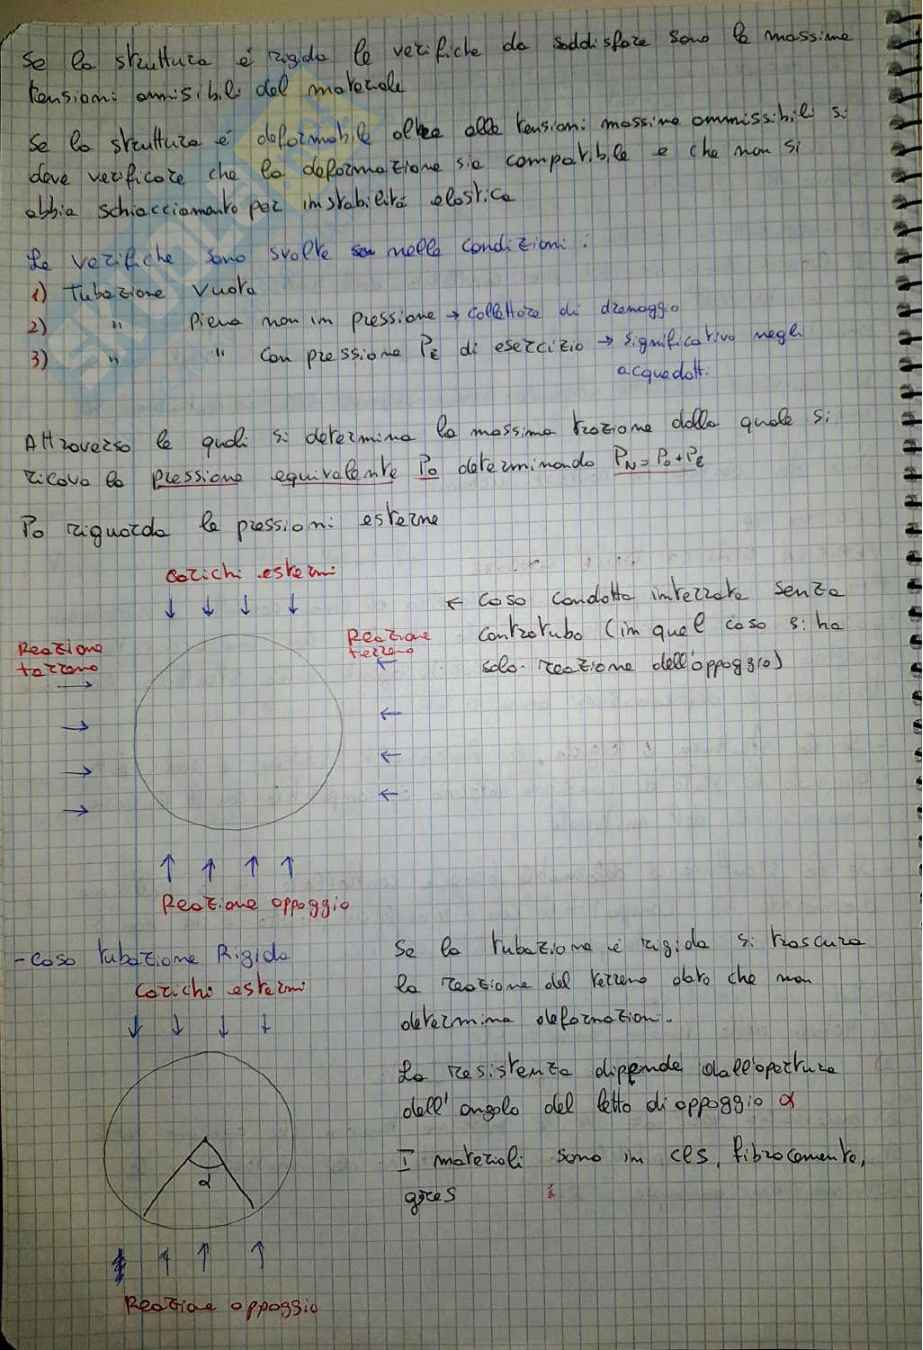 Se la struttura è rigida le verifiche da soddisfare sono le massime
tensioni amisibili del materiale
Se la struttura è deformabile oltre alle tensioni massime ammissibili si
deve verificare che la deformazione sia compatibile e che non si
abbia schiacciamento per instabilità elastica
Le verifiche sono svolte nelle condizioni:
1) Tubazione vuota
2) " Piena non in pressione → collettore di drenaggio
3) " " con pressione PE di esercizio → significativo negli
acquedotti
Attraverso le quali si determina la massima trazione dalla quale si
ricava la pressione equivalente P0 determinando PN = P0 + PE
P0 riguarda le pressioni esterne
carichi esterni
← caso condotta interrata senza
controtubo (in quel caso si ha
solo reazione dell'appoggio)
Reazione
terreno
Reazione
terreno
Reazione appoggio
- Caso tubazione Rigida
carichi esterni
Se la tubazione è rigida si trascura
la reazione del terreno dato che non
determina deformazioni.
La resistenza dippende dall'apertura
dell'angolo del letto di appoggio α
I materiali sono in cls, fibrocemente,
gres
α
Reazione appoggio